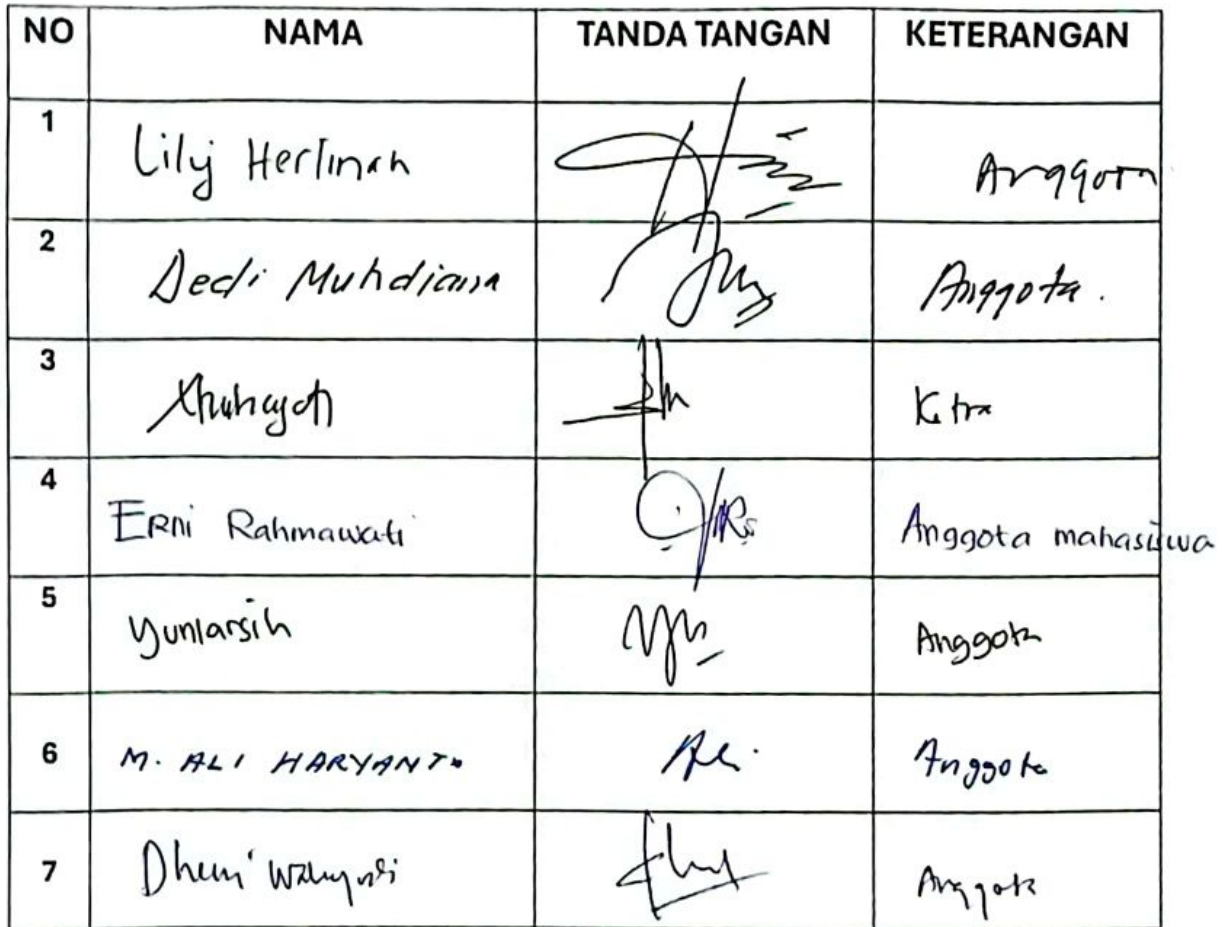 NO NAMA TANDA TANGAN KETERANGAN
1 Lily Herlinah Anggota
2 Dedi Muhdiana Anggota.
3
4 Erni Rahmawati Anggota mahasiswa
5 Yuniarsih Anggota
6 M. ALI HARYANTO Ali. Anggota
7 Dheni Anggota